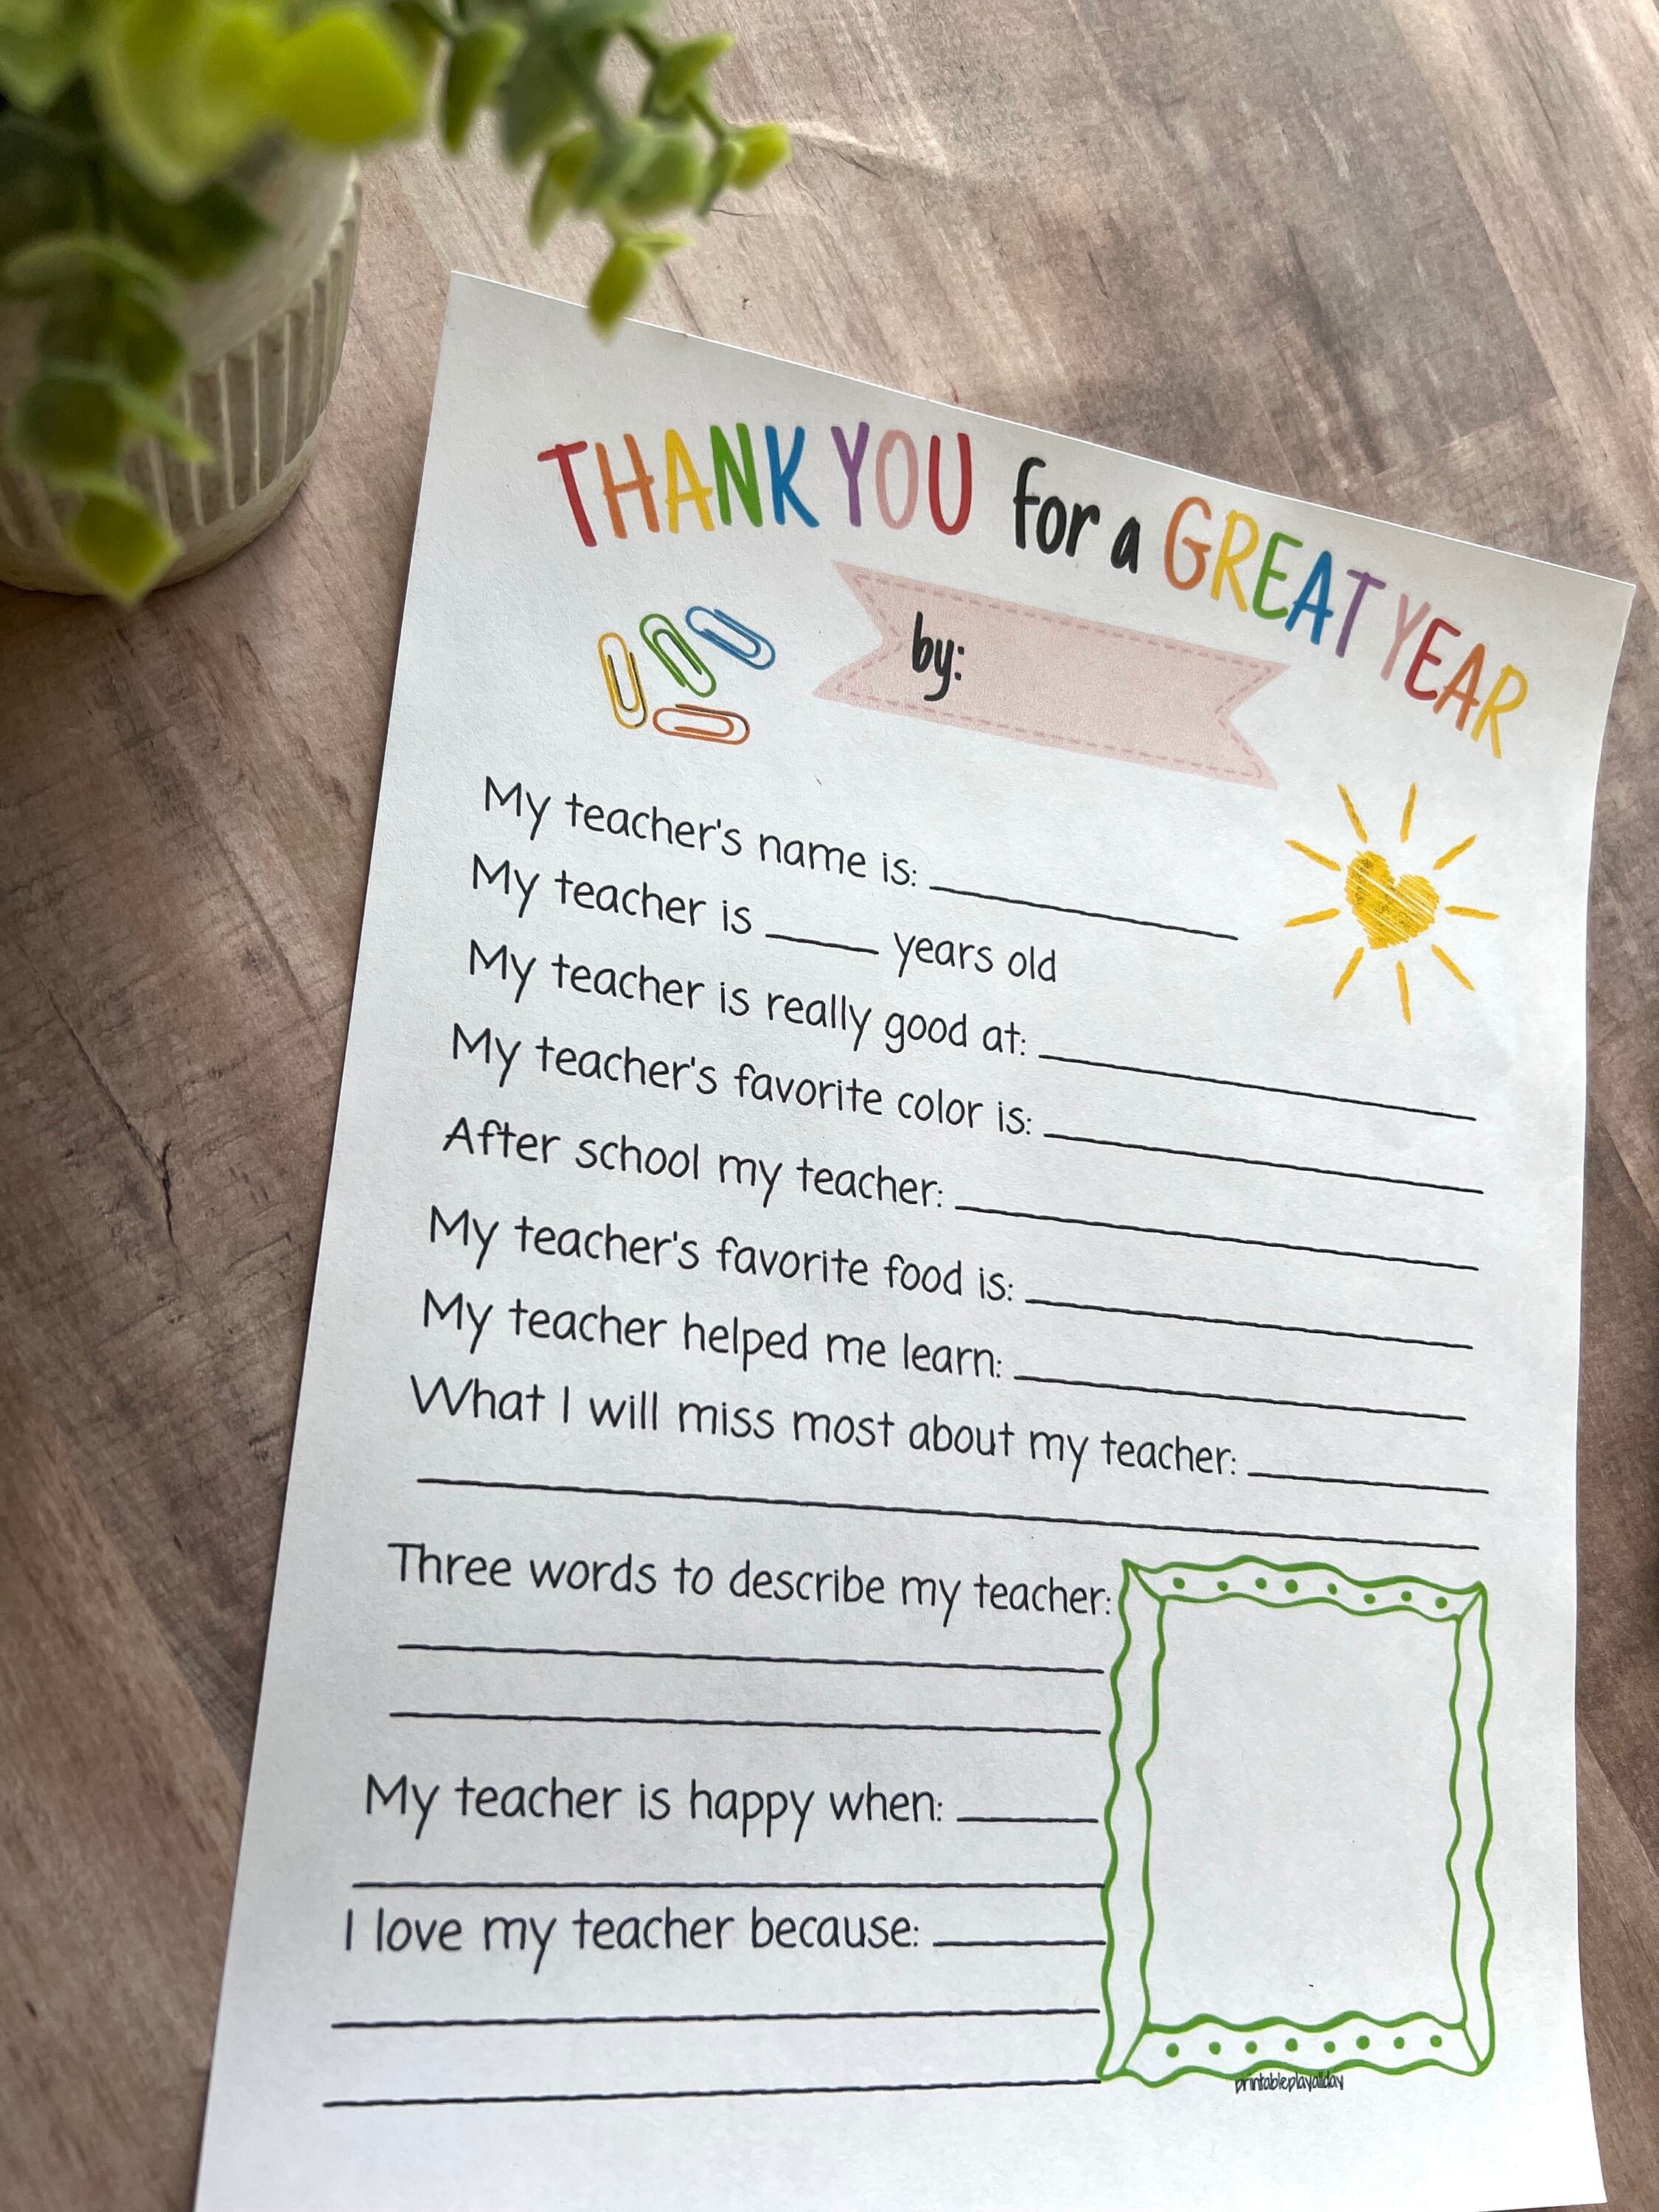 THANK YOU for a GREAT YEAR
by:
My teacher's name is:
My teacher is ____ years old
My teacher is really good at:
My teacher's favorite color is:
After school my teacher:
My teacher's favorite food is:
My teacher helped me learn:
What I will miss most about my teacher:
Three words to describe my teacher:
My teacher is happy when:
I love my teacher because:
printableplayallday